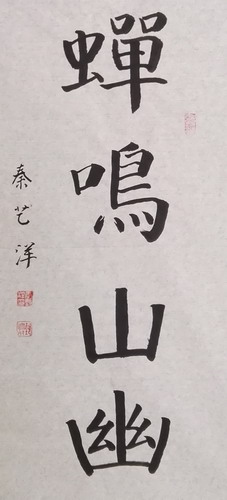 蟬鳴山幽
秦艺洋